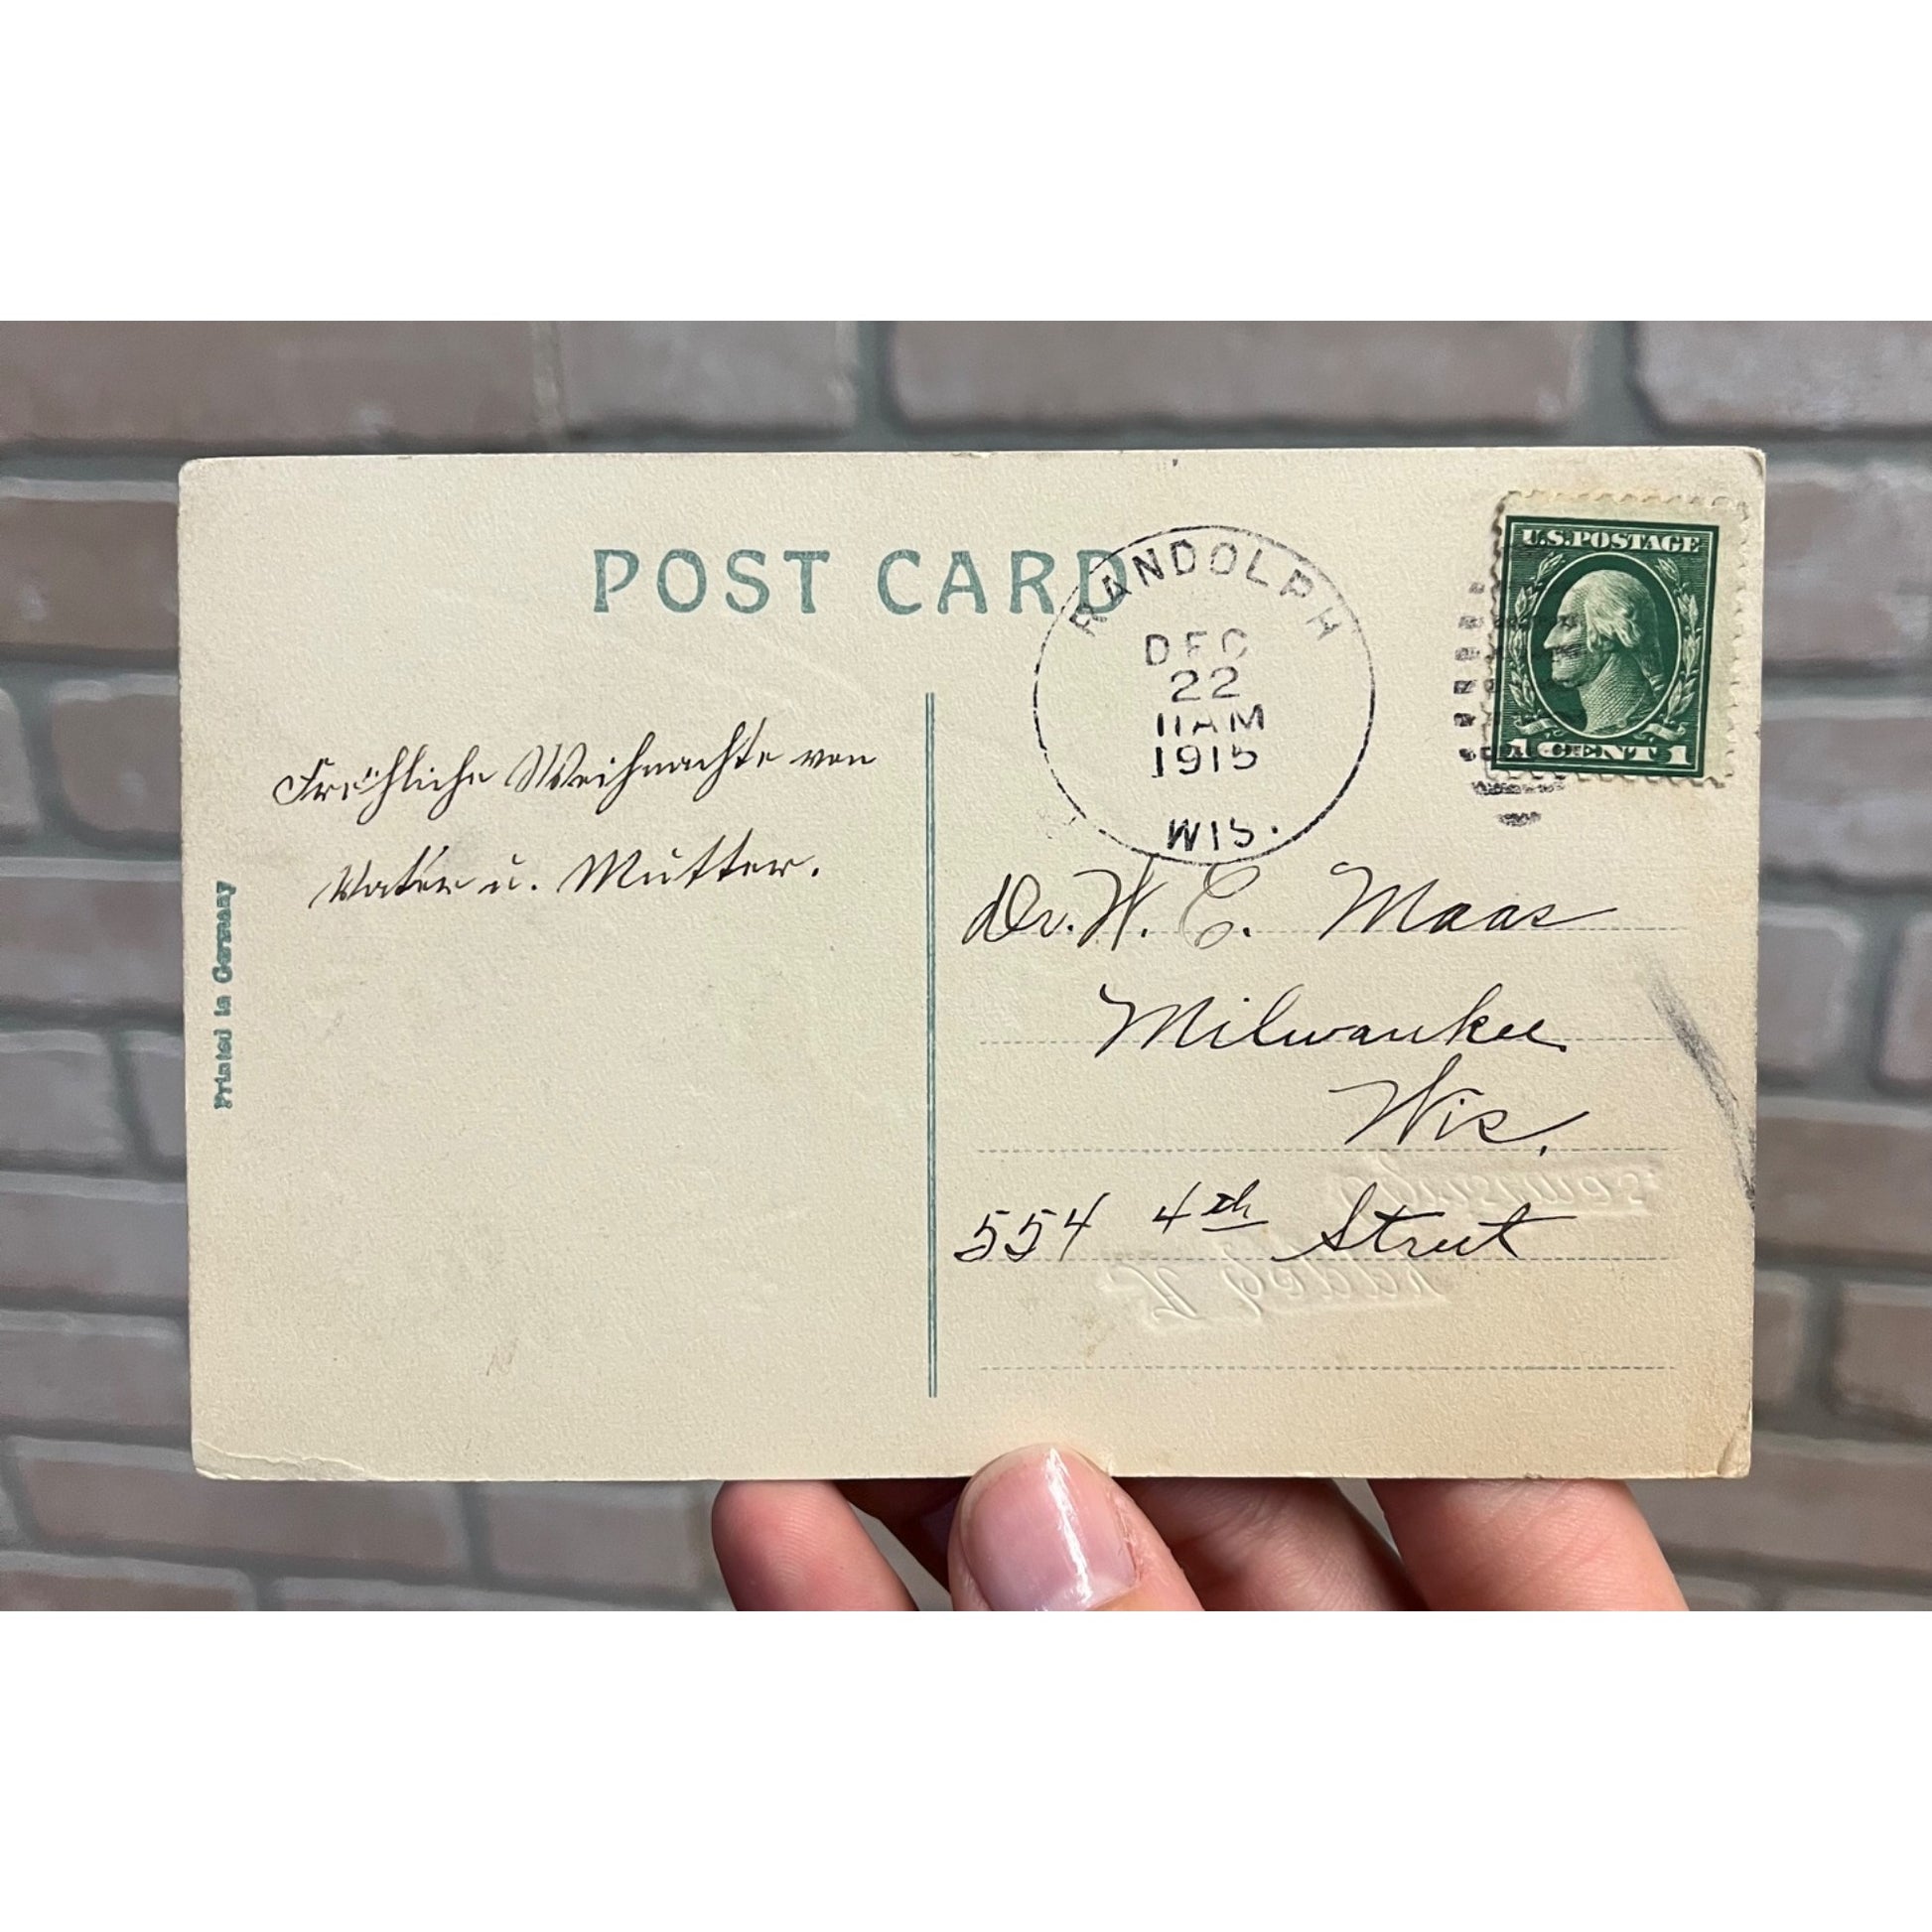 POST CARD
RANDOLPH
DEC
22
11 AM
1915
WIS.
U.S. POSTAGE
1 CENT 1
Fröhliche Weihnachte von
Vater u. Mutter.
Printed in Germany
Dr. W. C. Maas
Milwaukee
Wis.
554 4th Street
Christmas